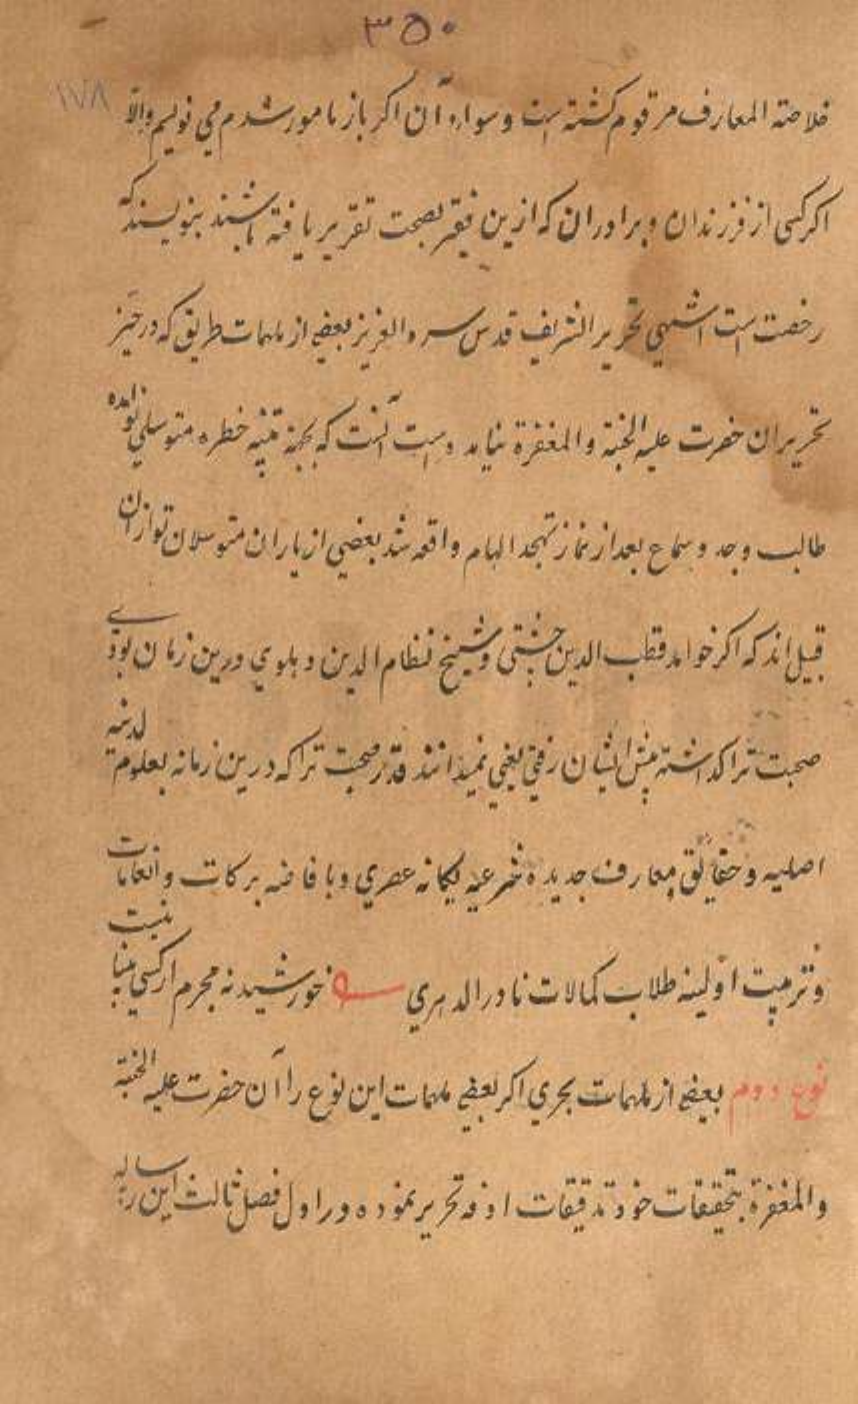 ۳۵۰
۱۷۸
خلاصة المعارف مرقوم كشته است و سواء آن اكر باز مامور شدم مي نويسم والّا
اكر كسى از فرزندان و برادران كه ازين فقير بصحت تقرير يافته باشند بنويسند كه
رخصت است انتهى تحرير الشريف قدس سره العزيز بعضے از ملهمات طريق كه در حيّز
تحرير ان حضرت عليه الجنة والمغفرة نيامده است آنست كه بجهة تنبيه خطره متوسلي
طالب وجد و سماع بعد از نماز تهجد الهام واقعه شد بعضي از ياران متوسلان تو ازان
قبيل اند كه اكر خواجه قطب الدين چشتى و شيخ نظام الدين دهلوي درين زمان بودے
صحبت ترا كذاشته پيش ايشان رفتي يعني نميدانند قدر صحبت ترا كه درين زمانه بعلوم لدنيه
اصليه و حقايق و معارف جديده شرعيه يكانه عصري و بافاضه بركات و انعامات
و تربيت اوّلينه طلاب كمالات نادر الدهري خورشيد نه مجرم ار كسي بينا نيست
نوع دوم بعضے از ملهمات بحري اكر بعضے ملهمات اين نوع را آن حضرت عليه الجنة
والمغفرة بتحقيقات خود تدقيقات تحرير نموده در اول فصل ثالث اين رساله